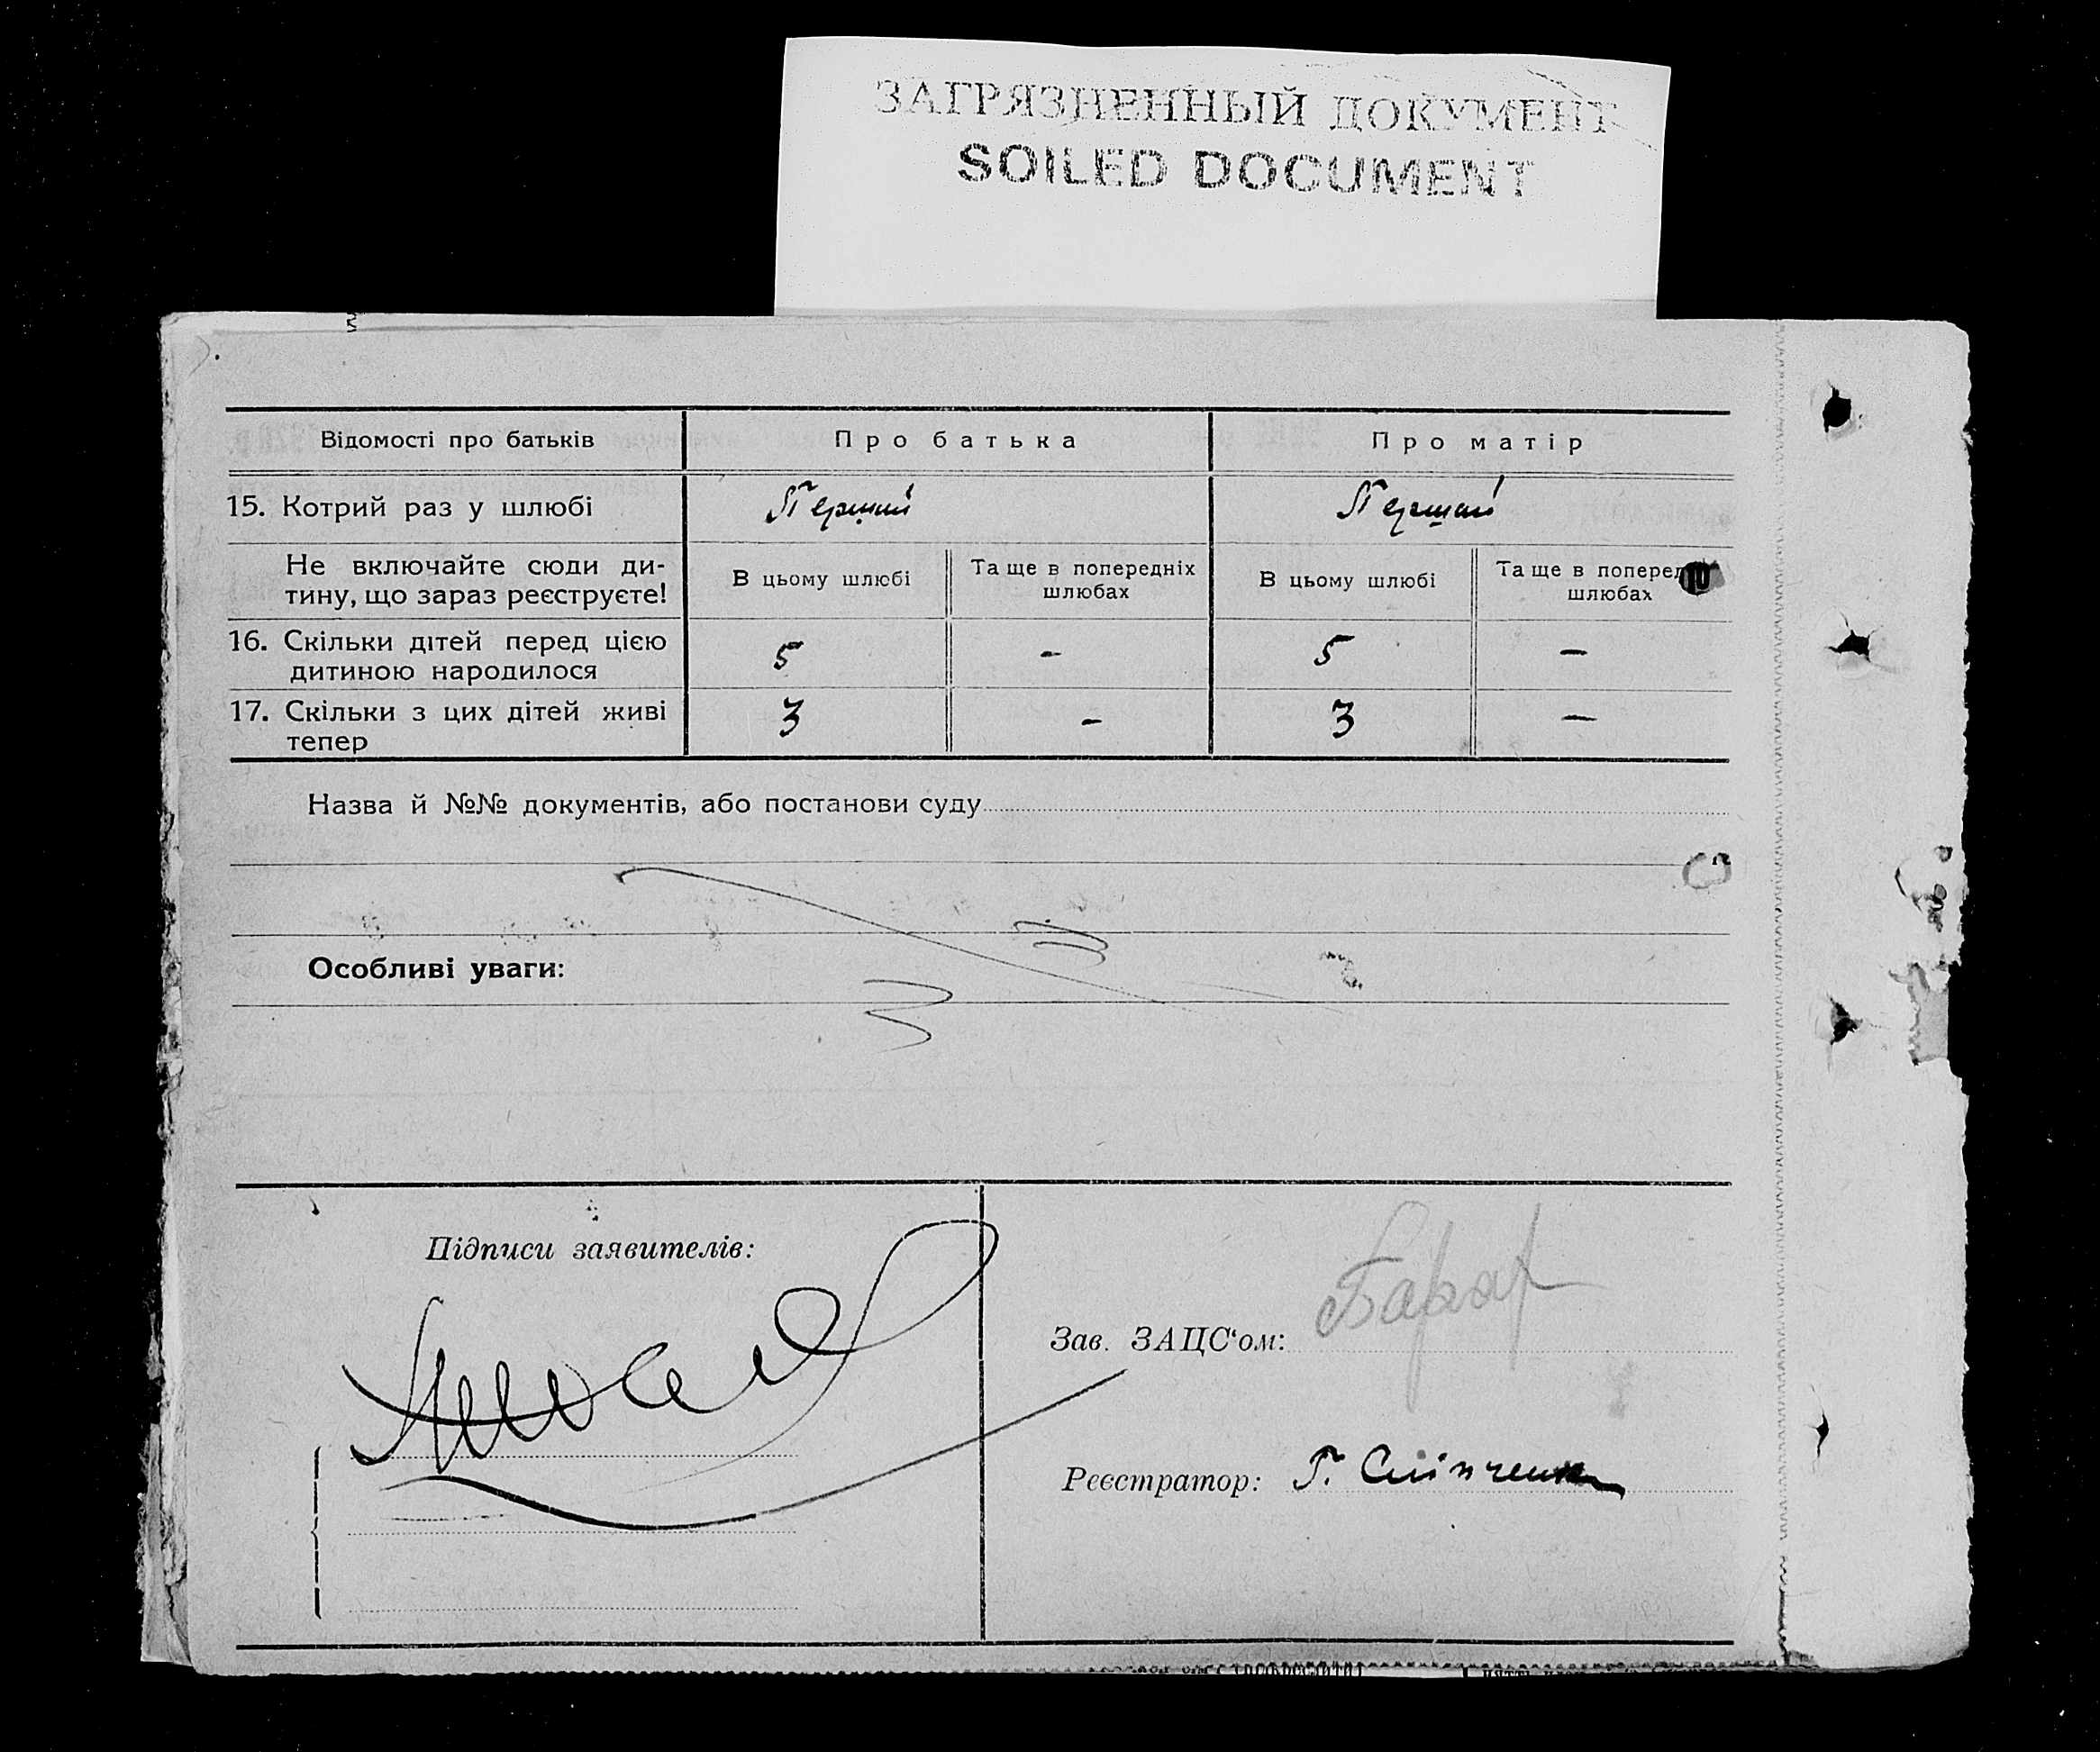 ЗАГРЯЗНЕННЫЙ ДОКУМЕНТ
SOILED DOCUMENT
Відомості про батьків
Про батька
Про матір
15. Котрий раз у шлюбі
Перший
Перший
Не включайте сюди ди-
тину, що зараз реєструєте!
В цьому шлюбі
Та ще в попередніх
шлюбах
В цьому шлюбі
Та ще в поперед
шлюбах
16. Скільки дітей перед цією
дитиною народилося
5
-
5
-
17. Скільки з цих дітей живі
тепер
3
-
3
-
Назва й №№ документів, або постанови суду
Особливі уваги:
Підписи заявителів:
Зав. ЗАЦС'ом:
Реєстратор: Г.